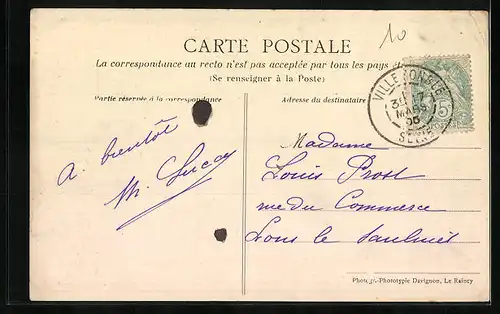 10
CARTE POSTALE
La correspondance au recto n'est pas acceptée par tous les pays
(Se renseigner à la Poste)
Partie réservée à la correspondance
Adresse du destinataire
5
MARS
05
SEINE
A bientôt
Madame
Louis Prost
rue du Commerce
Lons le Saulnier
Photog.-Phototypie Davignon, Le Raincy